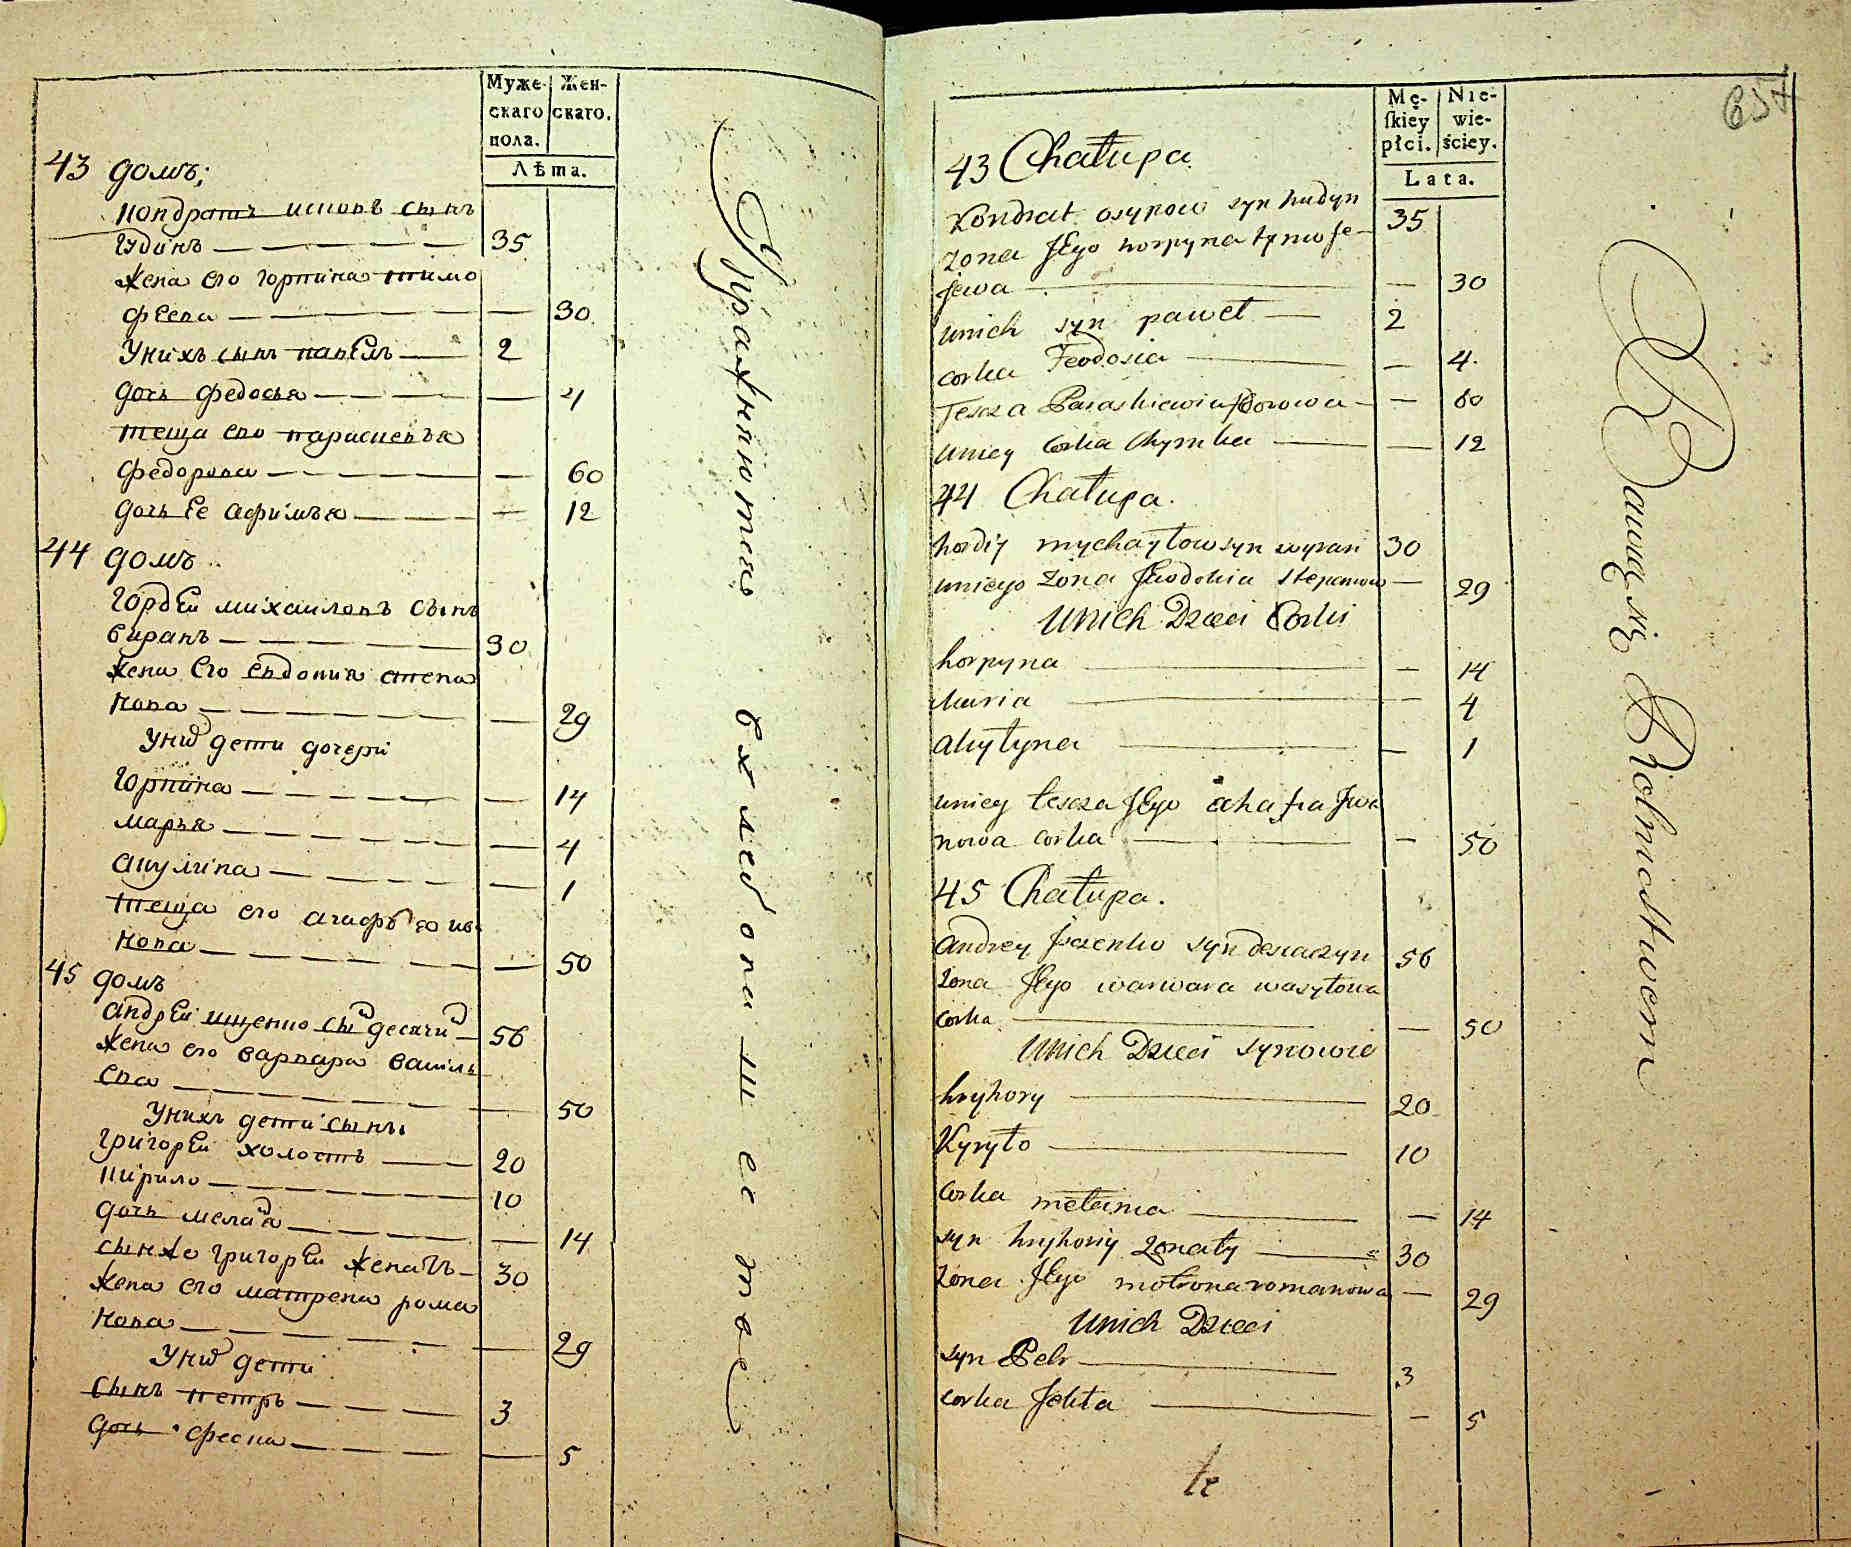 Муже-
скаго
пола.
Жен-
скаго.
Лѣта.
43 домъ;
кондратъ исиовъ сынъ
гудинъ — 35
жена его горпина тимо
фѣева — — 30
Унихъ сынъ павѣлъ — 2
дочь федосья — — 4
теща его парасковья
федорова — — 60
дочь ее афимья — — 12
44 домъ
гордѣи михаиловъ сынъ
виранъ — 30
жена его евдокия степа
нова — — 29
Уних дети дочери
горпина — — 14
марья — — 4
акулина — — 1
теща его агафья ива
нова — — 50
45 домъ
андрѣи ищенко сын десячин — 56
жена его варвара василь
ева — — 50
Унихъ дети сыны
григорѣи холостъ — 20
кирило — 10
дочь мелания — — 14
сынже григорѣи женатъ — 30
жена его матрена рома
нова — — 29
Уних дети
сынъ петръ — 3
дочь фескa — — 5
Упражняютца
вхлебопашестве
Mę-
ſkiey
płci.
Nie-
wie-
ściey.
Lata.
657
43 Chałupa
Kondrat osypow syn hudyn 35
zona Jego horpyna tymofe-
jewa — — 30
unich syn paweł — 2
corka Feodosia — — 4
Tescza Paraskiewia fedorowa — — 60
uniey Corka Chymka — — 12
44 Chałupa.
hordiy mychayłow syn wyran 30
uniego zona Jewdokia stepanowa — 29
Unich Dzieci Corki
horpyna — — 14
Maria — — 4
akułyna — — 1
uniey tescza Jego ahafia Jwa
nowa corka — — 50
45 Chałupa.
andrey Jszenko syn desiaczyn 56
zona Jego warwara wasyłowa
corka — — 50
Unich Dzieci synowie
hryhory — 20
Kyryło — 10
Corka mełania — — 14
syn hryhoriy zonaty — 30
zona Jego motrona romanowa — 29
Unich Dzieci
syn Petr — 3
corka fekła — — 5
Bawią się Rolnictwem